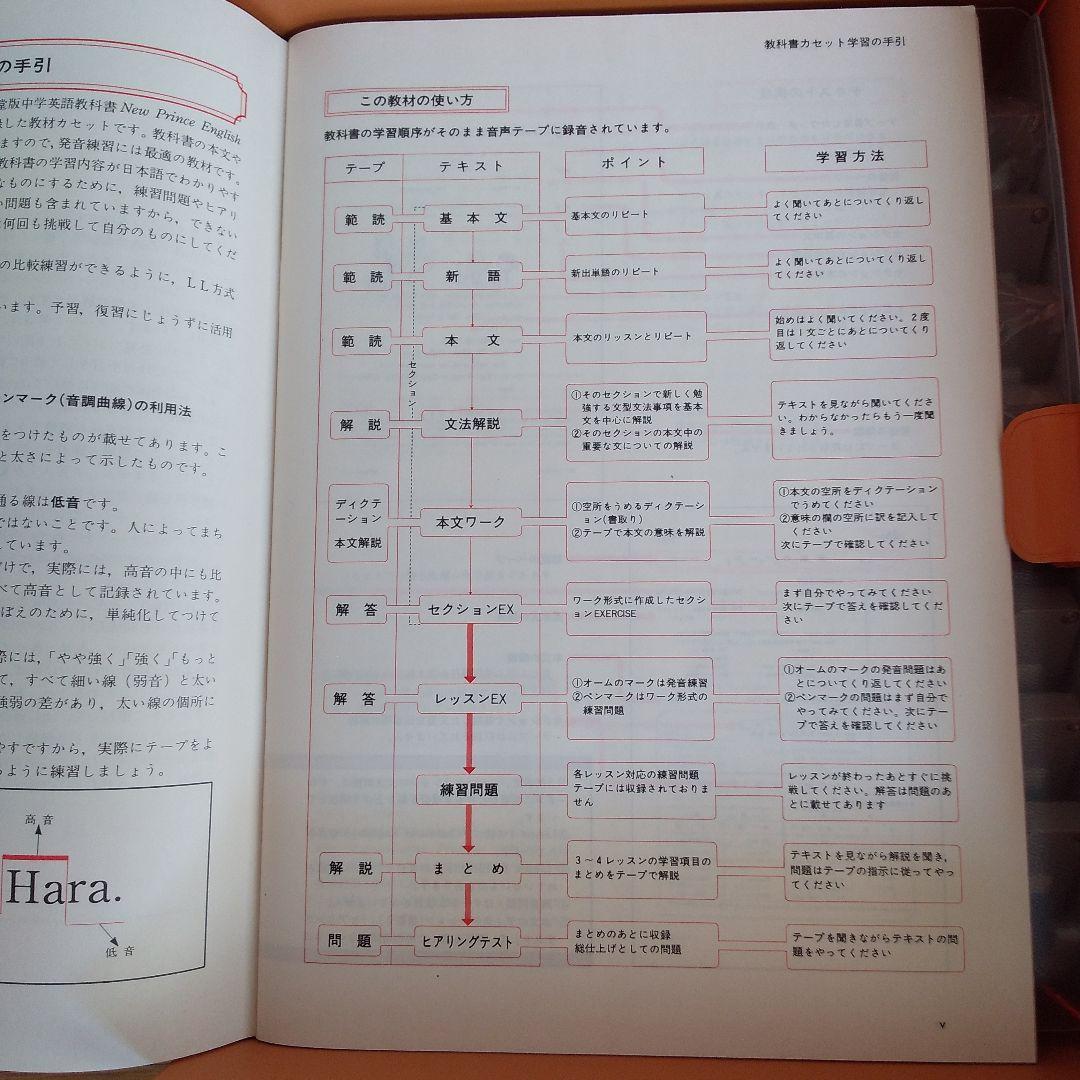 の手引
堂版中学英語教科書 New Prince English
した教材カセットです。教科書の本文や
ますので，発音練習には最適の教材です。
教科書の学習内容が日本語でわかりやす
なものにするために，練習問題やヒアリ
い問題も含まれていますから，できない
何回も挑戦して自分のものにしてくだ
の比較練習ができるように，ＬＬ方式
います。予習，復習にじょうずに活用
ンマーク(音調曲線)の利用法
をつけたものが載せてあります。こ
と太さによって示したものです。
通る線は低音です。
ではないことです。人によってまち
しています。
だけで，実際には，高音の中にも比
べて高音として記録されています。
ぼえのために，単純化してつけて
際には，「やや強く」「強く」「もっと
て，すべて細い線（弱音）と太い
強弱の差があり，太い線の個所に
やすですから，実際にテープをよ
るように練習しましょう。
高音
Hara.
低音
教科書カセット学習の手引
この教材の使い方
教科書の学習順序がそのまま音声テープに録音されています。
テープ
テキスト
ポイント
学習方法
範読
基本文
基本文のリピート
よく聞いてあとについてくり返し
てください
範読
新語
新出単語のリピート
よく聞いてあとについてくり返し
てください
範読
本文
本文のリッスンとリピート
始めはよく聞いてください。２度
目は１文ごとにあとについてくり
返してください
セクション
解説
文法解説
①そのセクションで新しく勉
強する文型文法事項を基本
文を中心に解説
②そのセクションの本文中の
重要な文についての解説
テキストを見ながら聞いてくださ
い。わからなかったらもう一度聞
きましょう。
ディクテ
ーション
本文解説
本文ワーク
①空所をうめるディクテーシ
ョン(書取り)
②テープで本文の意味を解説
①本文の空所をディクテーション
でうめてください
②意味の欄の空所に訳を記入して
ください
次にテープで確認してください
解答
セクションEX
ワーク形式に作成したセクシ
ョンEXERCISE
まず自分でやってみてください
次にテープで答えを確認してくだ
さい
解答
レッスンEX
①オームのマークは発音練習
②ペンマークはワーク形式の
練習問題
①オームのマークの発音問題はあ
とについてくり返してください
②ペンマークの問題はまず自分で
やってみてください。次にテー
プで答えを確認してください
練習問題
各レッスン対応の練習問題
テープには収録されておりま
せん
レッスンが終わったあとすぐに挑
戦してください。解答は問題のあ
とに載せてあります
解説
まとめ
３～４レッスンの学習項目の
まとめをテープで解説
テキストを見ながら解説を聞き，
問題はテープの指示に従ってやっ
てください
問題
ヒアリングテスト
まとめのあとに収録
総仕上げとしての問題
テープを聞きながらテキストの問
題をやってください
v